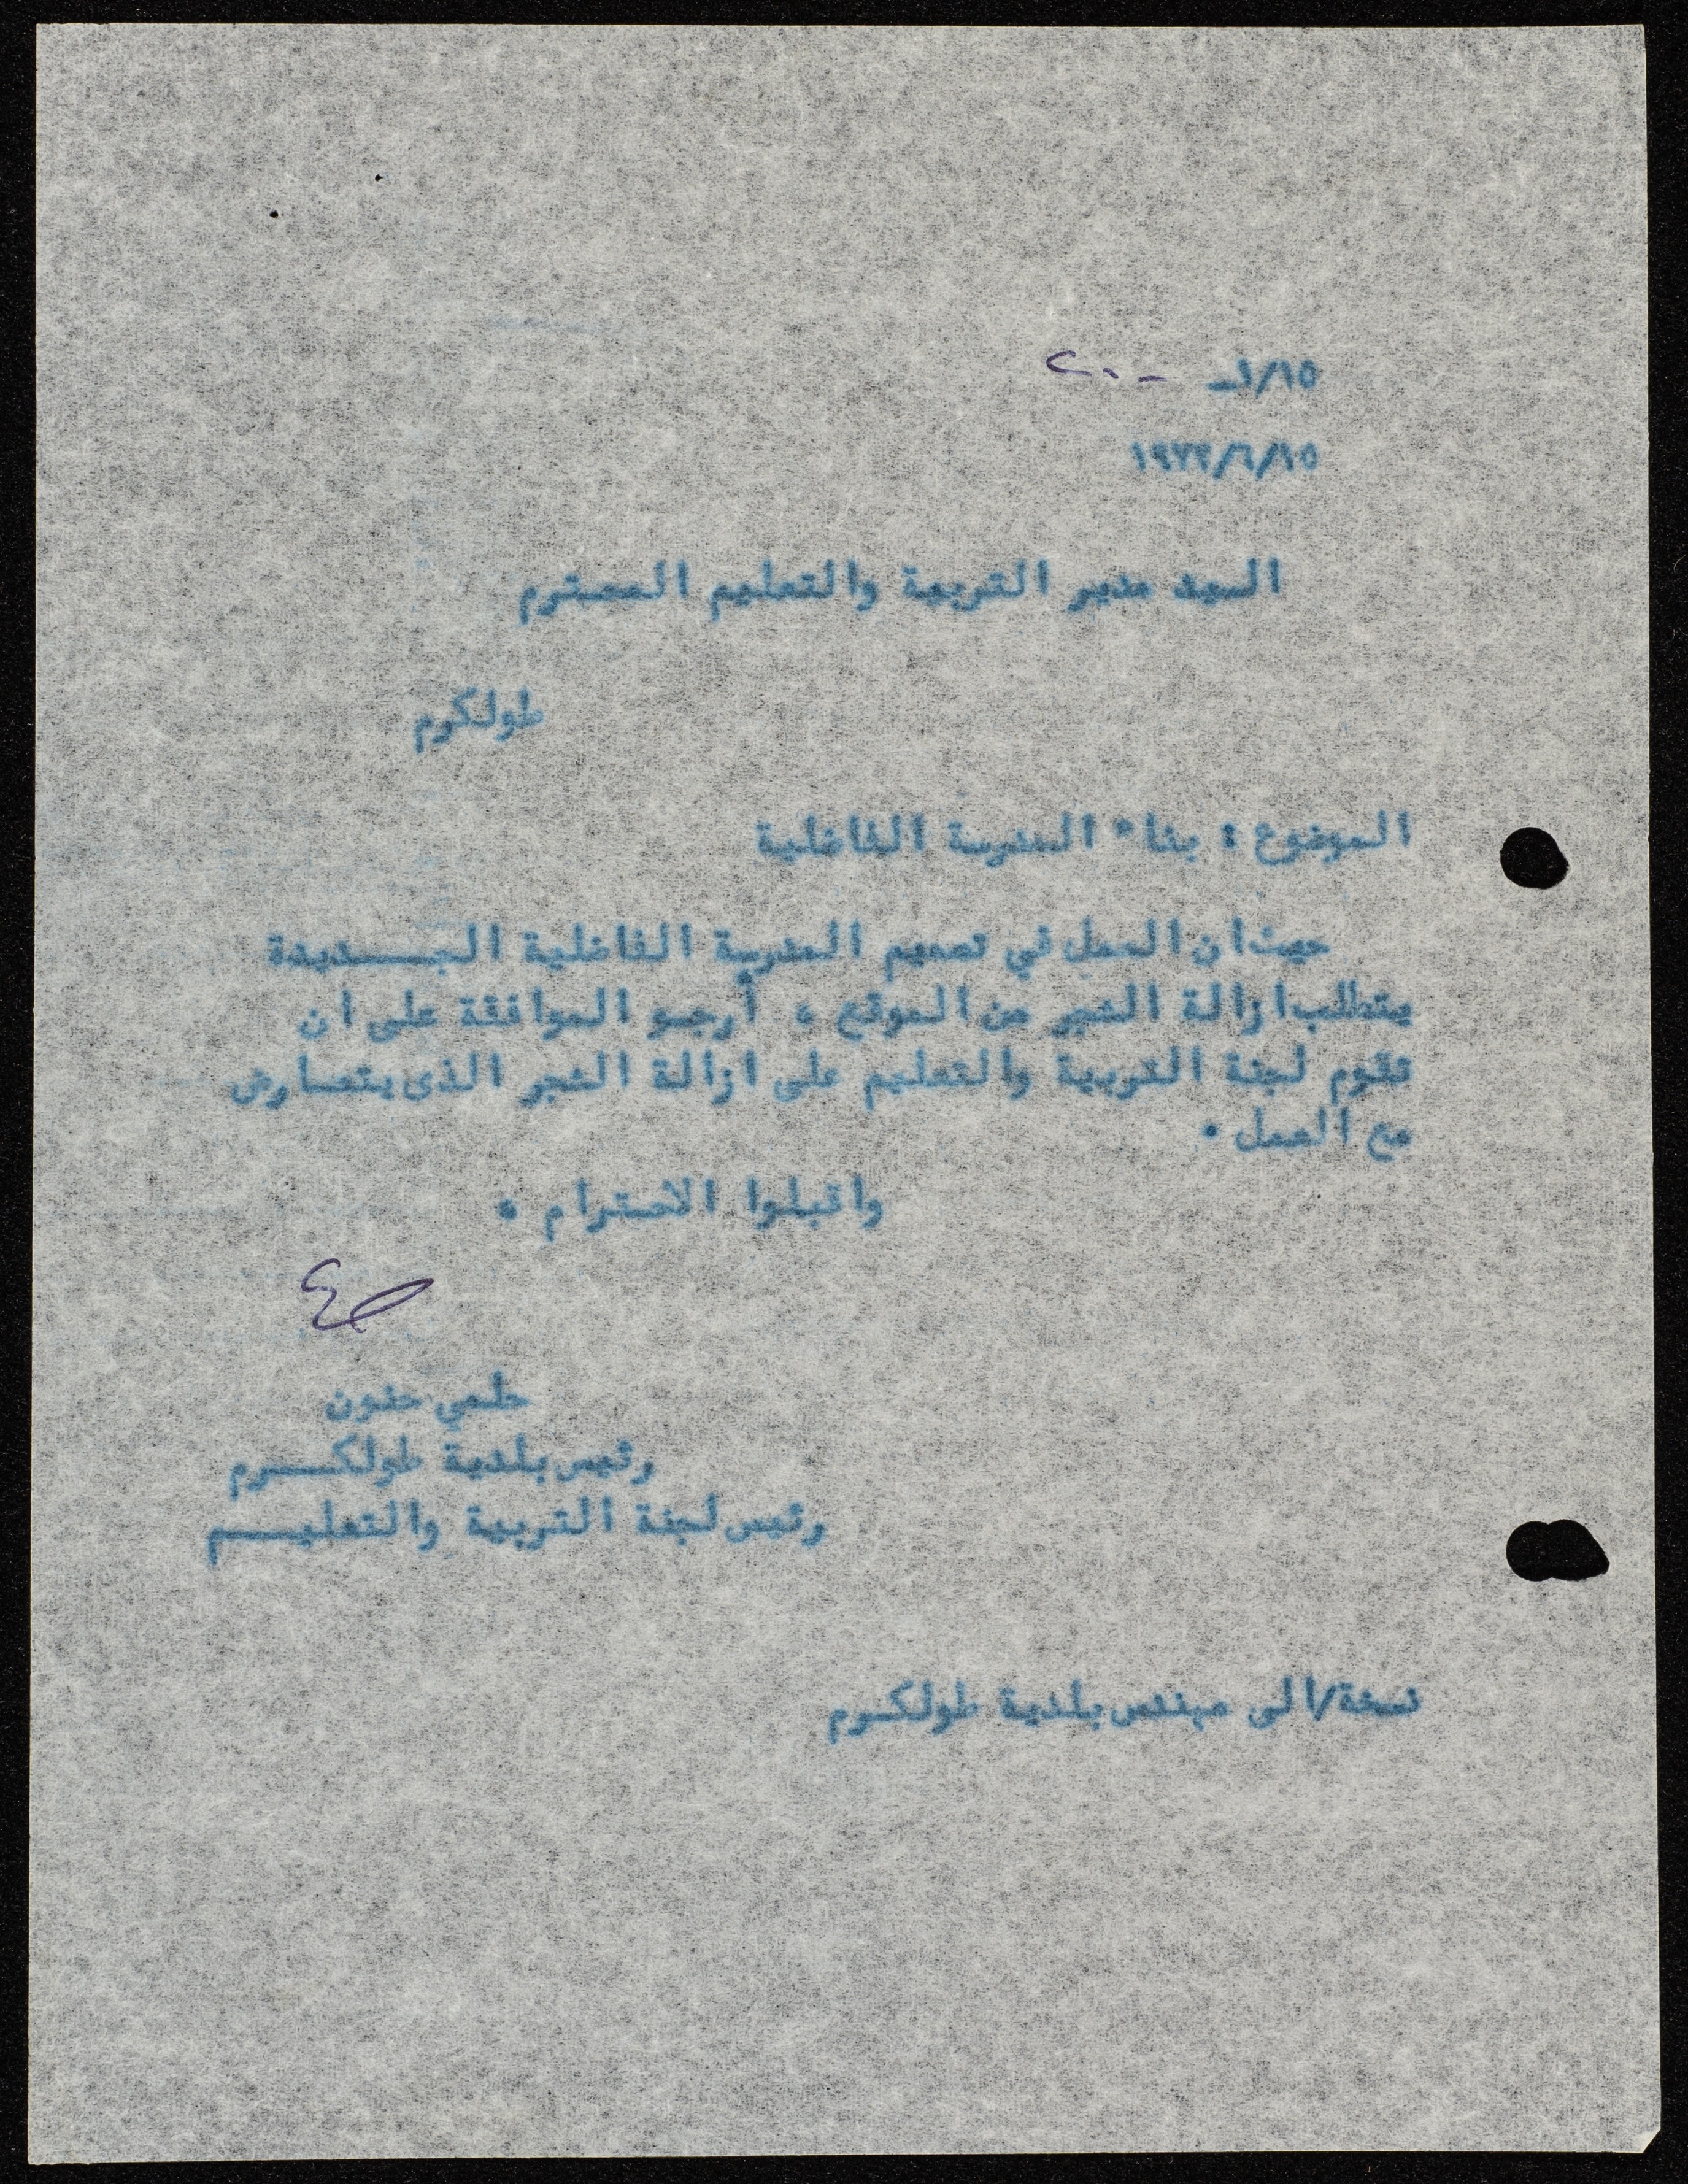 ١/١٥ـ
١٩٧٣/٦/١٥
السيد مدير التربية والتعليم المحترم
طولكرم
الموضوع : بناء المدرسة الفاضلية
حيث ان العمل في تصميم المدرسة الفاضلية الجـــديدة
يتطلب ازالة الشجر من الموقع ، أرجو الموافقة على ان
تقوم لجنة التربية والتعليم على ازالة الشجر الذى يتعارض
مع العمل .
واقبلوا الاحترام .
حلمي حنون
رئيس بلدية طولكـــرم
رئيس لجنة التربية والتعليـــم
نسخة/الى مهندس بلدية طولكرم